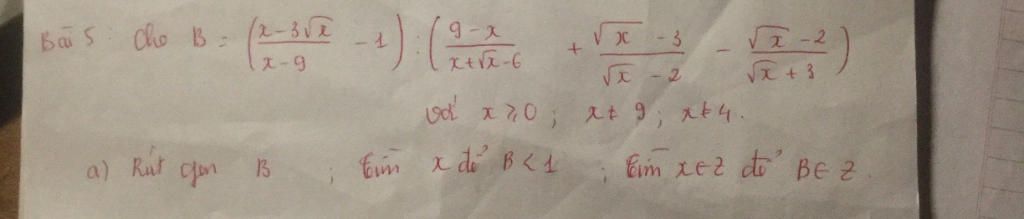 Bài 5 : Cho B = ( (x - 3√x)/(x - 9) - 1 ) : ( (9 - x)/(x + √x - 6) + (√x - 3)/(√x - 2) - (√x - 2)/(√x + 3) )
với x ⩾ 0 ; x ≠ 9 ; x ≠ 4.
a) Rút gọn B ; tìm x để B < 1 ; tìm x ∈ Z để B ∈ Z.